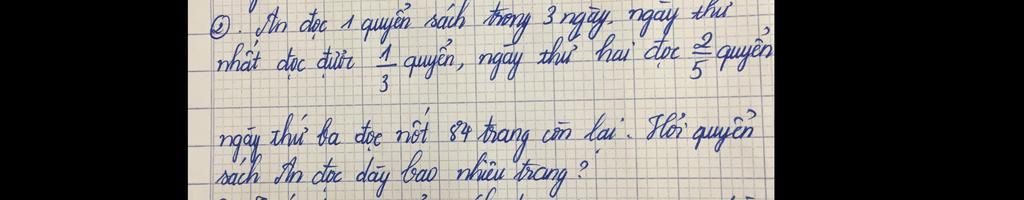 ②. An đọc 1 quyển sách trong 3 ngày, ngày thứ
nhất đọc được 1/3 quyển, ngày thứ hai đọc 2/5 quyển
ngày thứ ba đọc nốt 84 trang còn lại. Hỏi quyển
sách An đọc dày bao nhiêu trang?